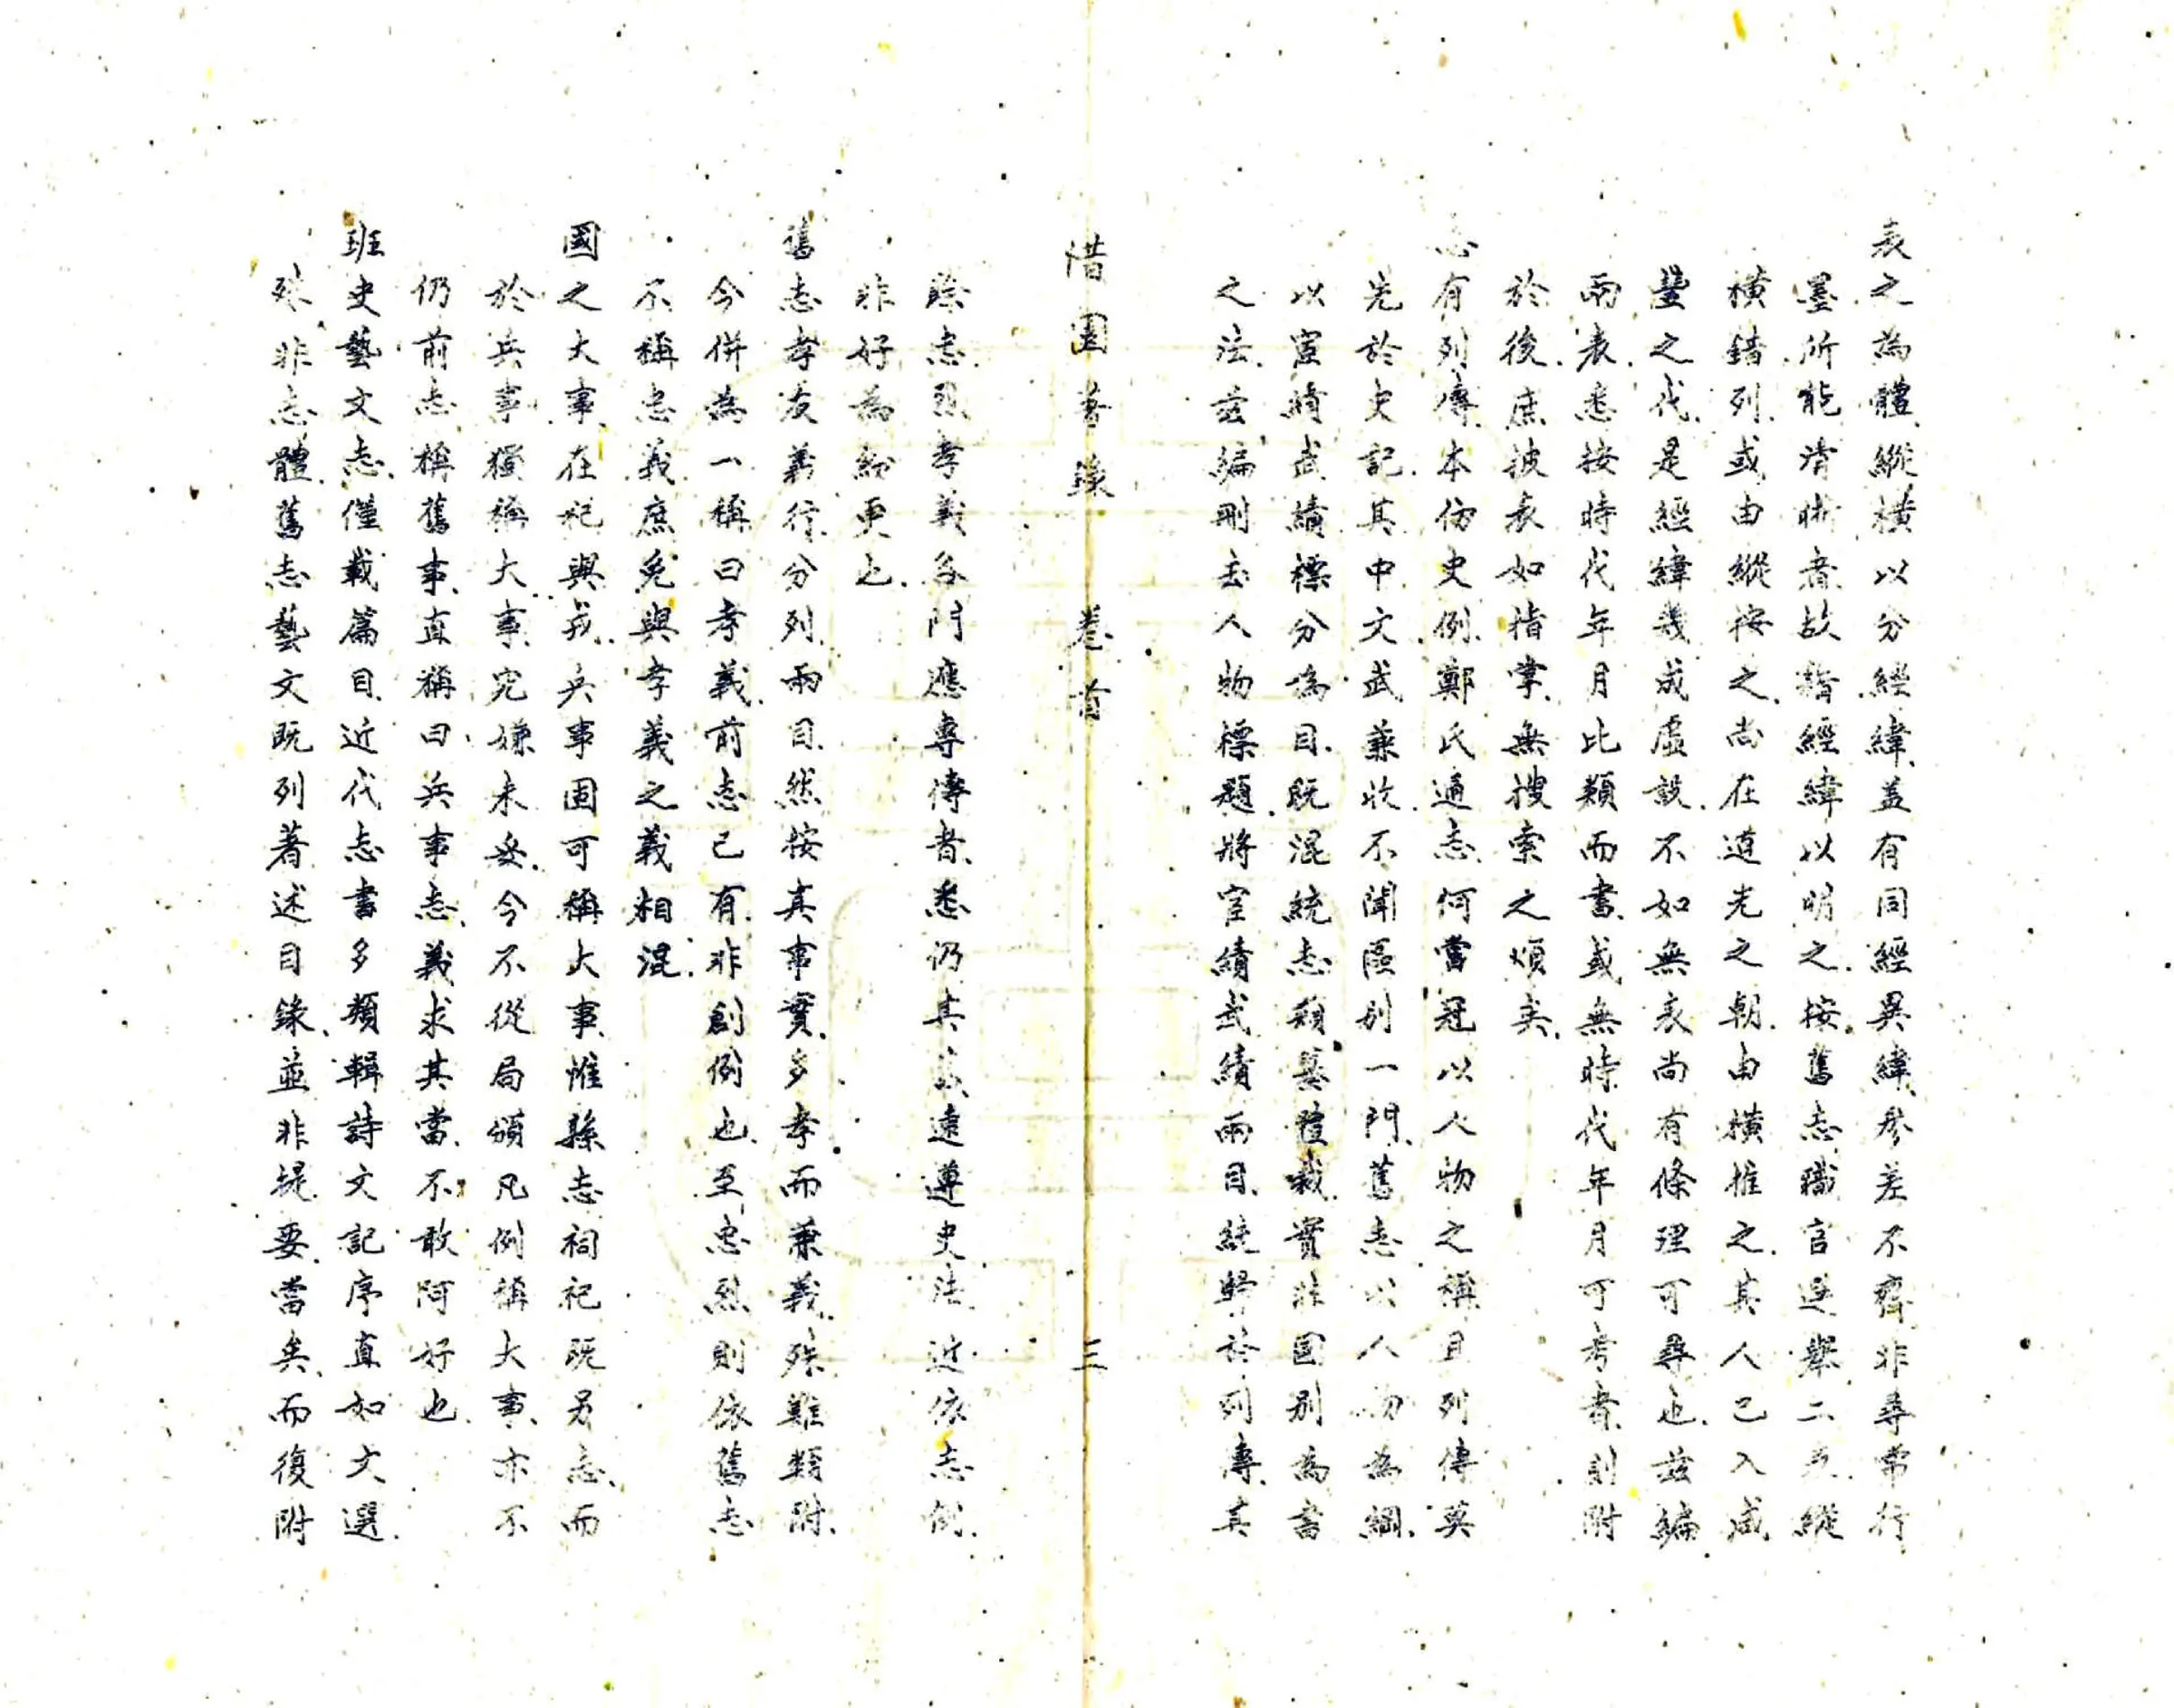 表之為體縱橫以分經緯蓋有同經異緯參差不齊非尋常行
墨所能清晰者故諧經緯以明之按舊志職官選舉二表縱
橫錯列或由縱按之尚在道光之朝由橫推之其人已入咸
豐之代是經緯幾成虛設不如無表尚有條理可尋也茲編
兩表悉按時代年月比類而書或無時代年月可考者則附
於後庶披表如指掌無搜索之煩矣
志有列傳本仿史例鄭氏通志何當冠以人物之稱且列傳莫
先於史記其中文武兼收不聞區別一門舊志以人物為綱
以宦績武績標分為目既混統志類纂體裁實非國別為書
之法茲編刪去人物標題將宦績武績兩目統歸於列傳其
惜園著錄 卷首 三
餘志烈孝義各門應專傳者悉仍其舊遠遵史法近依志例
非好為紛更也
舊志孝友義行分列兩目然按其事實多孝而兼義殊難類附
今併為一稱曰孝義前志已有非創例也至忠烈則依舊志
不稱忠義庶免與孝義之義相混
國之大事在祀與戎兵事固可稱大事惟縣志祠祀既另志而
於兵事獨稱大事究嫌未妥今不從局頒凡例稱大事亦不
仍前志稱舊事直稱曰兵事志義求其當不敢阿好也
班史藝文志僅載篇目近代志書多類輯詩文記序直如文選
殊非志體舊志藝文既列著述目錄並非提要當矣而復附